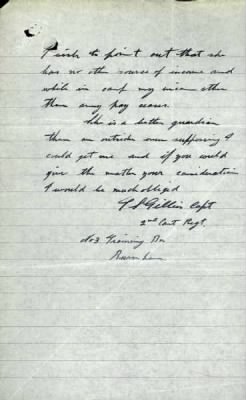 I wish to point out that she
has no other source of income and
while in camp my income other
than army pay ceases.
She is a better guardian
than an outside even supposing I
could get one and if you would
give the matter your consideration
I would be much obliged
Gillies Capt
2nd Cant Regt.
No 3 Training Bn
Burnham